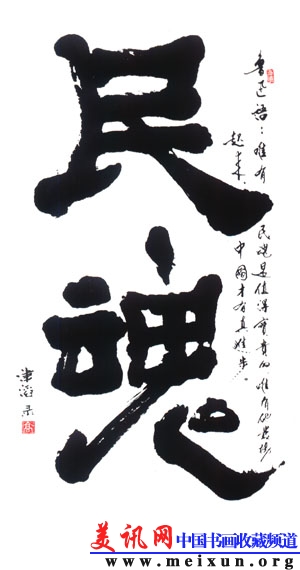 民魂
魯迅語：惟有民魂是值得寶貴的惟有他發揚
起来，中國才有真進步。
美讯网 中国书画收藏频道
www.meixun.org